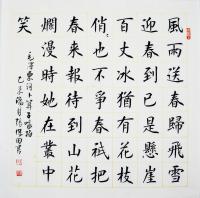 風雨送春歸飛雪
迎春到已是懸崖
百丈冰猶有花枝
俏〻也不爭春祇把
春來報待到山花
爛漫時她在叢中
笑
毛澤東詞卜算子詠梅